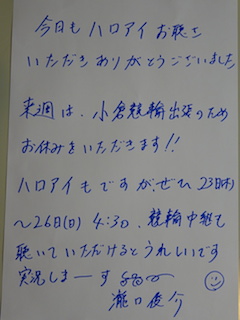 今日もハロアイお聴き
いただきありがとうございました
来週は、小倉競輪出張のため
お休みをいただきます!!
ハロアイもですがぜひ 23日(木)
〜26日(日) 4:30. 競輪中継も
聴いていただけるとうれしいです
実況しまーす
瀧口俊介